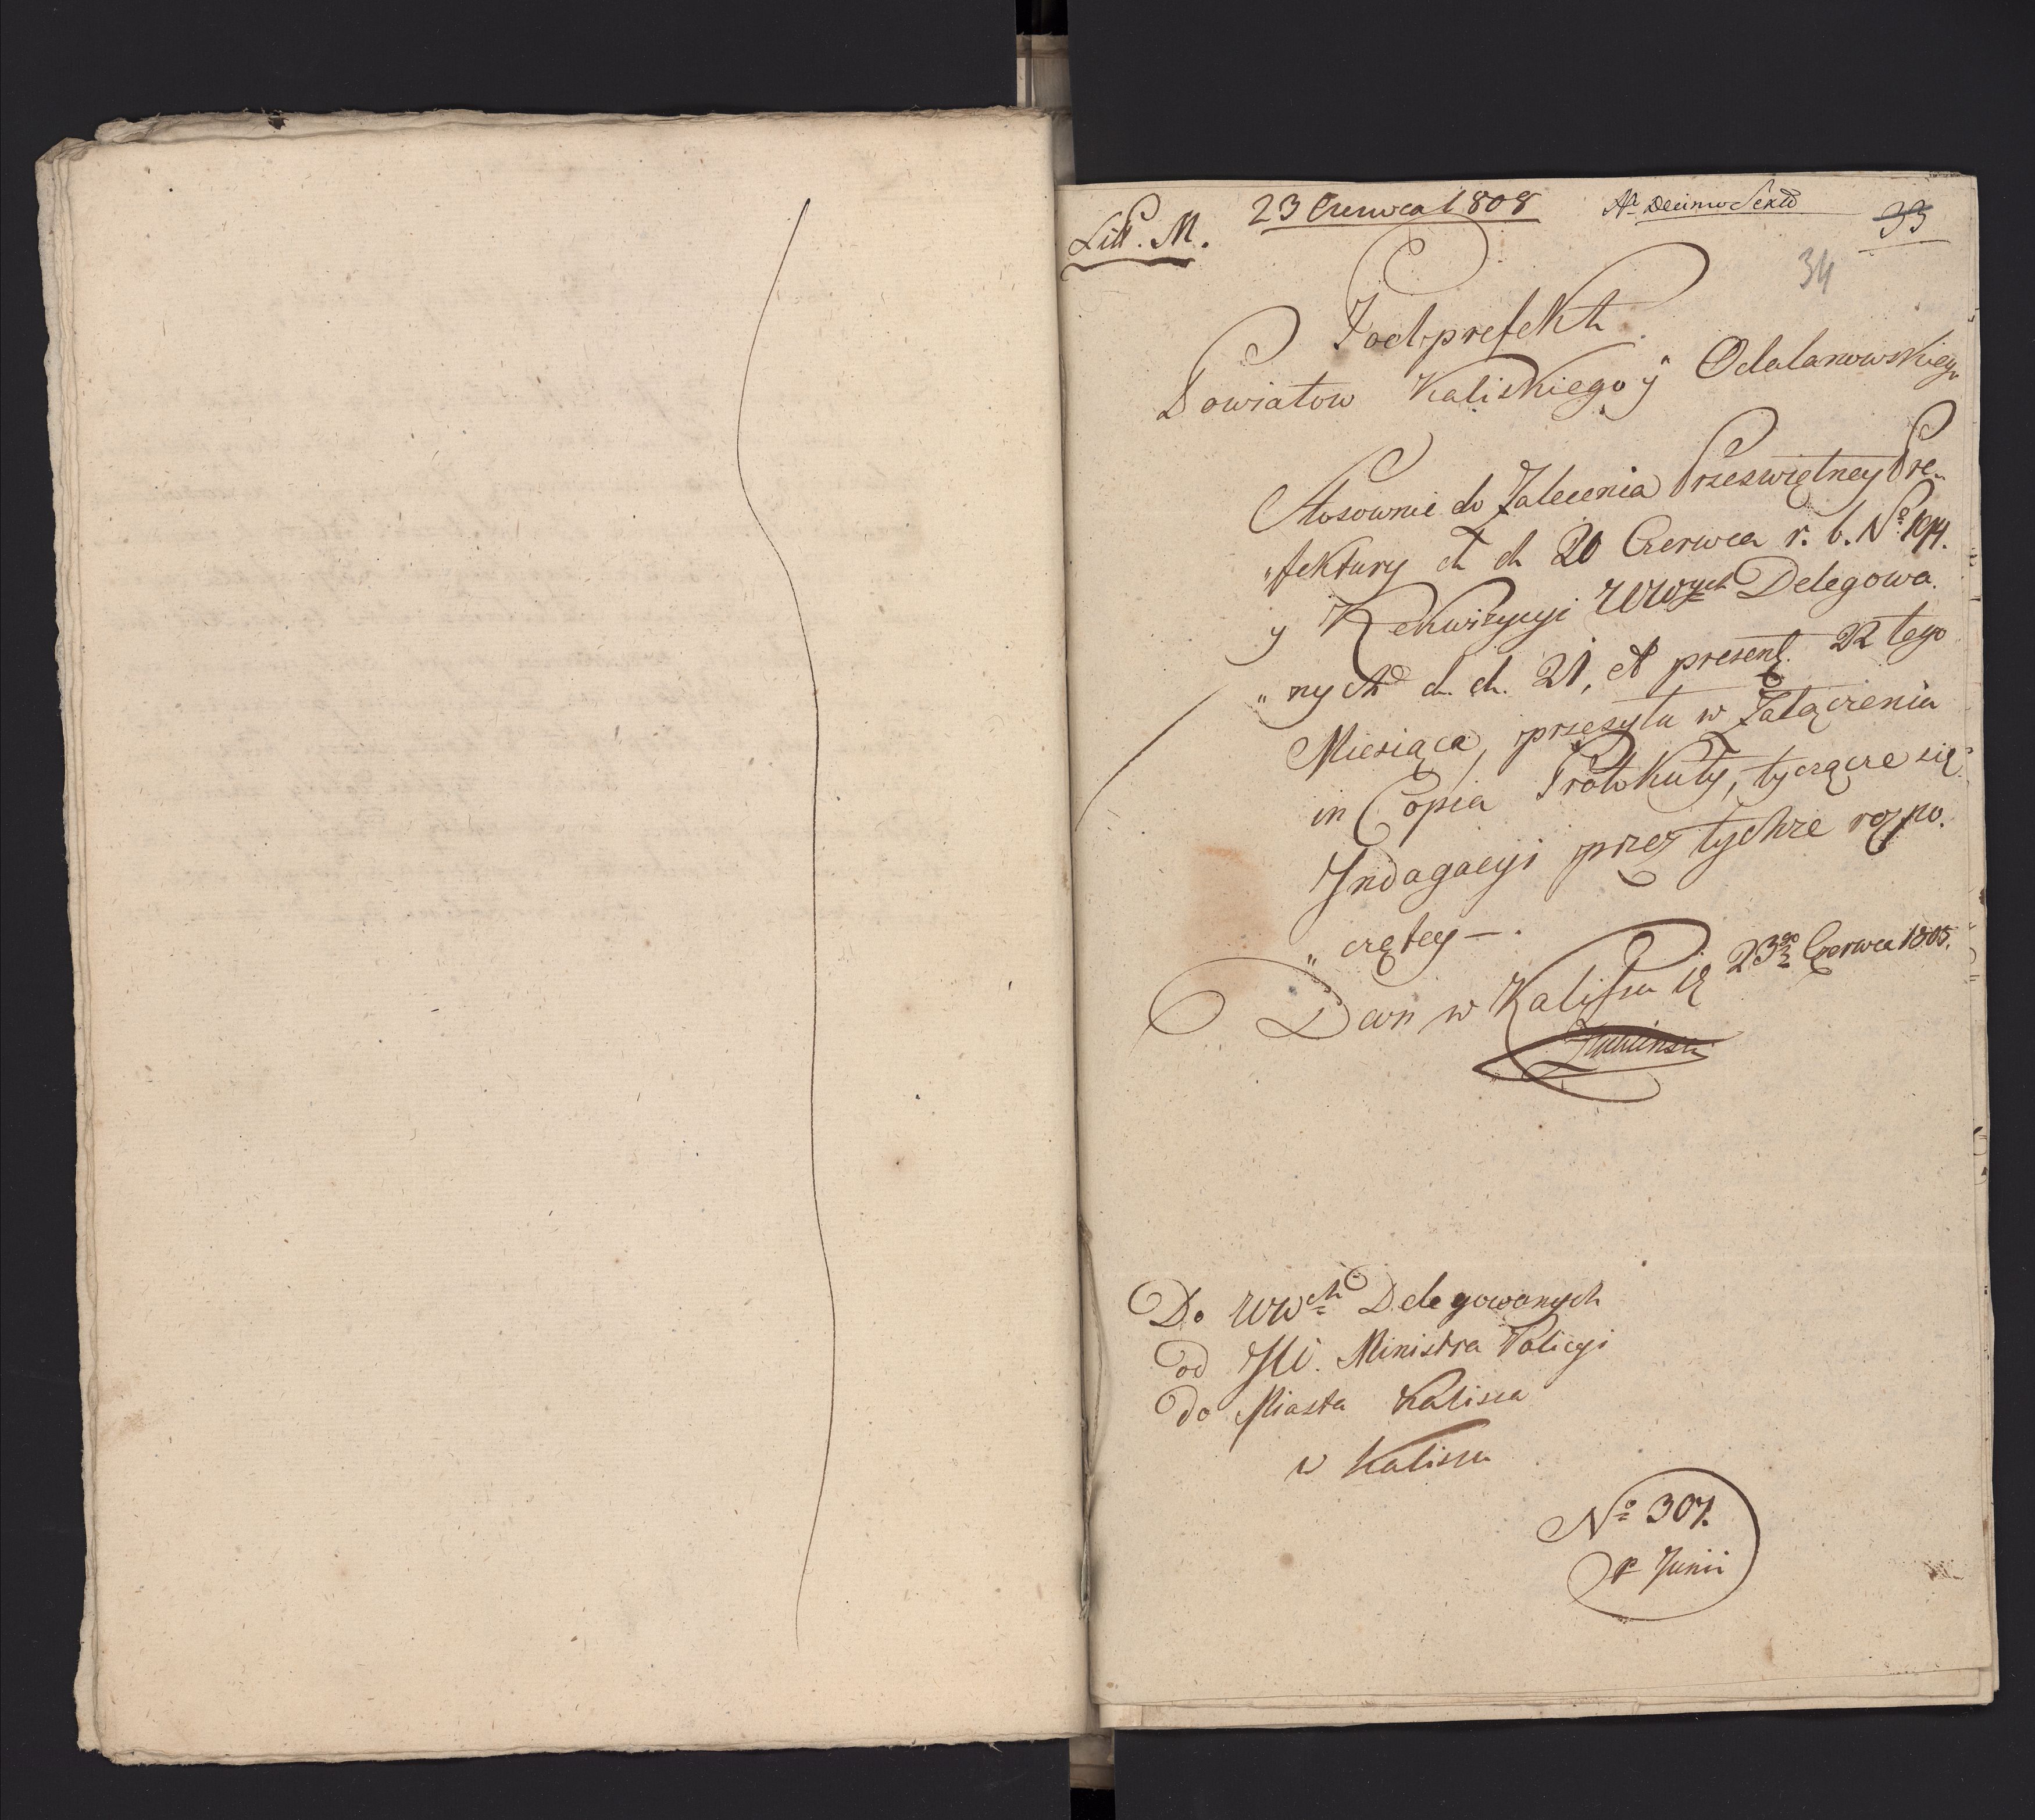 Litt. M.
23 Czerwca 1808
Aa Decimo Sexto
33
34
Podprefekt
Powiatow Kaliskiego y Odolanowskiego
Stosownie do Zalecenia Przeświętney Pre„
„fektury d d 20 Czerwca r. b. No
y Rekwizycyi WWych Delegowa.
„nych d. d. 21, et present. 22 tego
Miesiąca, przesyła w Załączeniu
in Copia Protokuły, tyczące się
Indagacyi przez tychże rozpo.
„czętey —.
Dan w Kaliszu d 23go Czerwca 1808.
Do WWch Delegowanych
od JW. Ministra Policyi
do Miasta Kalisza
w Kaliszu
No 307.
p Junii